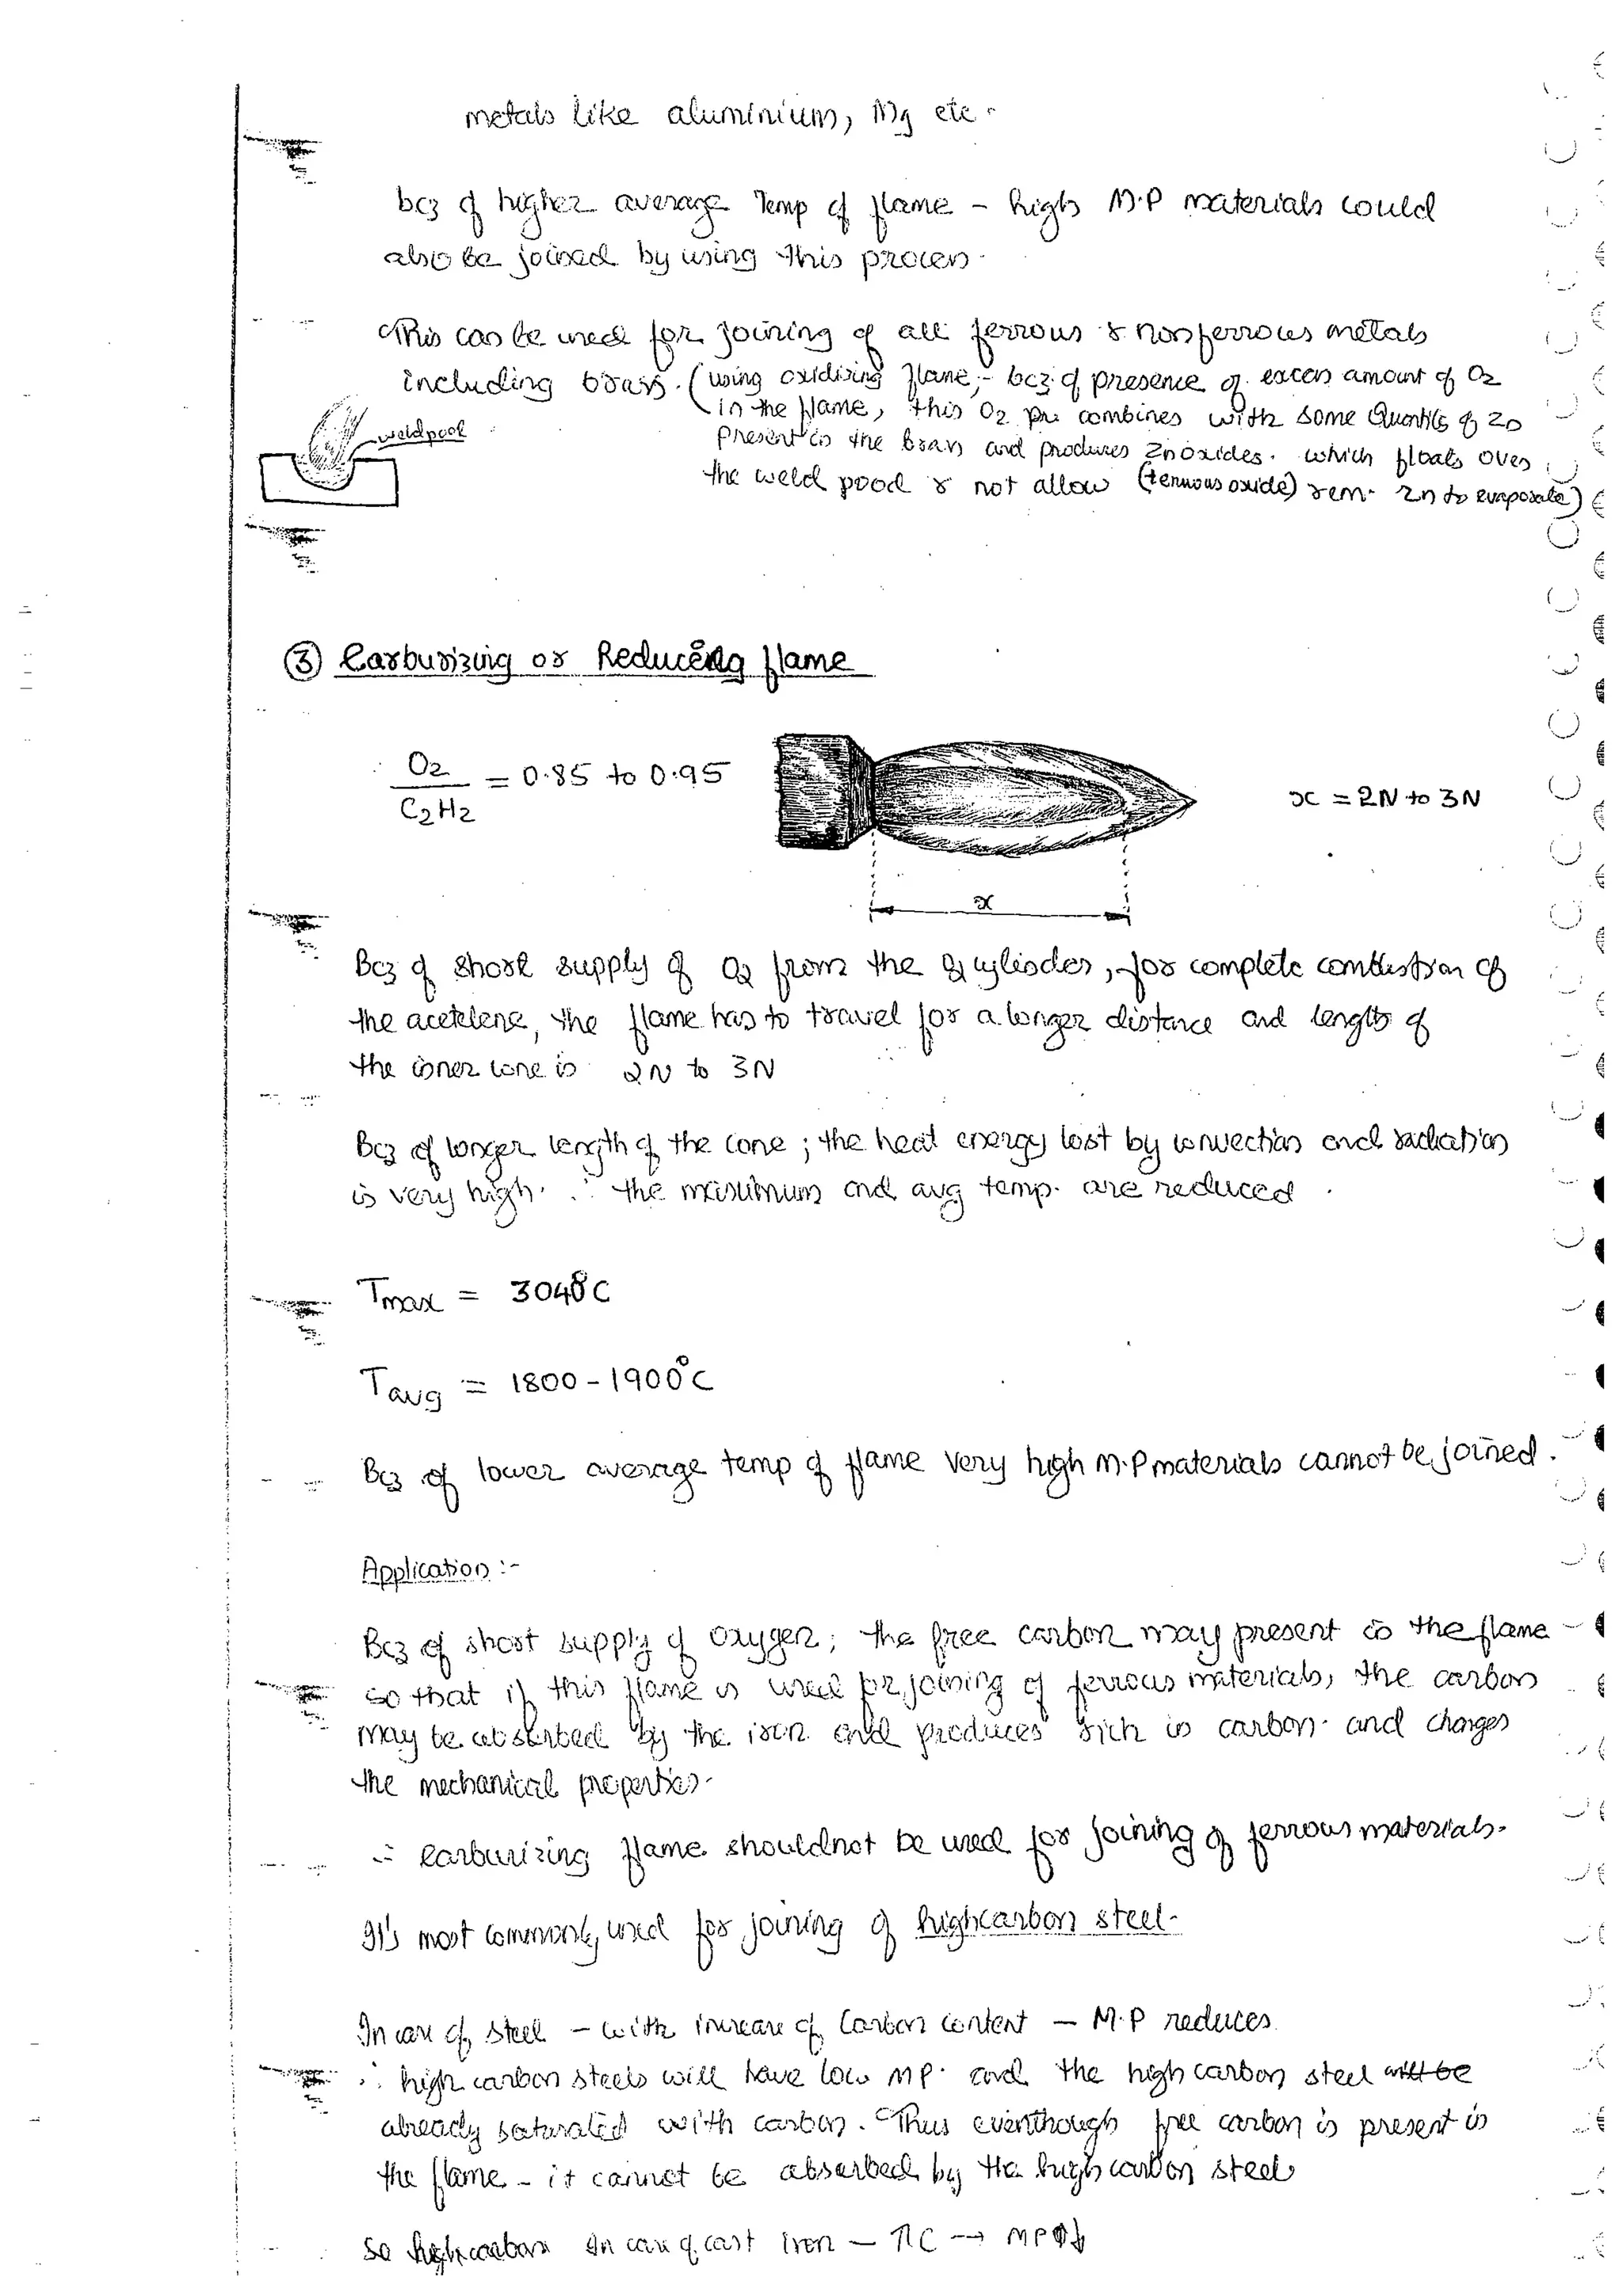 metals like aluminium, Mg etc.
bcz of higher average Temp of flame - high M.P materials could
also be joined by using this process.
This can be used for joining of all ferrous & nonferrous metals
including brass. (using oxidizing flame,- bcz of presence of excess amount of O2
in the flame, this O2 combines with some Quantity of Zn
present in the brass and produces Zn oxides. which floats over
the weld pool & not allow (tenuous oxide) rem. Zn to evaporate)
weld pool
③ Carburizing or Reducing flame
O2 / C2H2 = 0.85 to 0.95
x = 2N to 3N
x
Bcz of short supply of O2 from the O2 cylinder, for complete combustion of
the acetelene, the flame has to travel for a longer distance and length of
the inner cone is 2N to 3N
Bcz of longer length of the cone ; the heat energy lost by convection and radiation
is very high. ∴ the maximum and avg temp. are reduced.
Tmax = 3040°C
Tavg = 1800-1900°C
Bcz of lower average temp of flame very high M.P materials cannot be joined.
Application :-
Bcz of short supply of oxygen ; the free carbon may present in the flame
so that if this flame is used for joining of ferrous materials, the carbon
may be absorbed by the iron and produces rich in carbon. and changes
the mechanical properties.
∴ Carburizing flame should not be used for joining of ferrous materials.
It's most commonly used for joining of high carbon steel.
In case of steel - with increase of Carbon content - M.P reduces.
∴ high carbon steels will have low MP. and the high carbon steel will be
already saturated with carbon. Thus eventhough free carbon is present in
the flame - it cannot be absorbed by the high carbon steel
So high carbon In case of cast iron - ↑C → MP↓